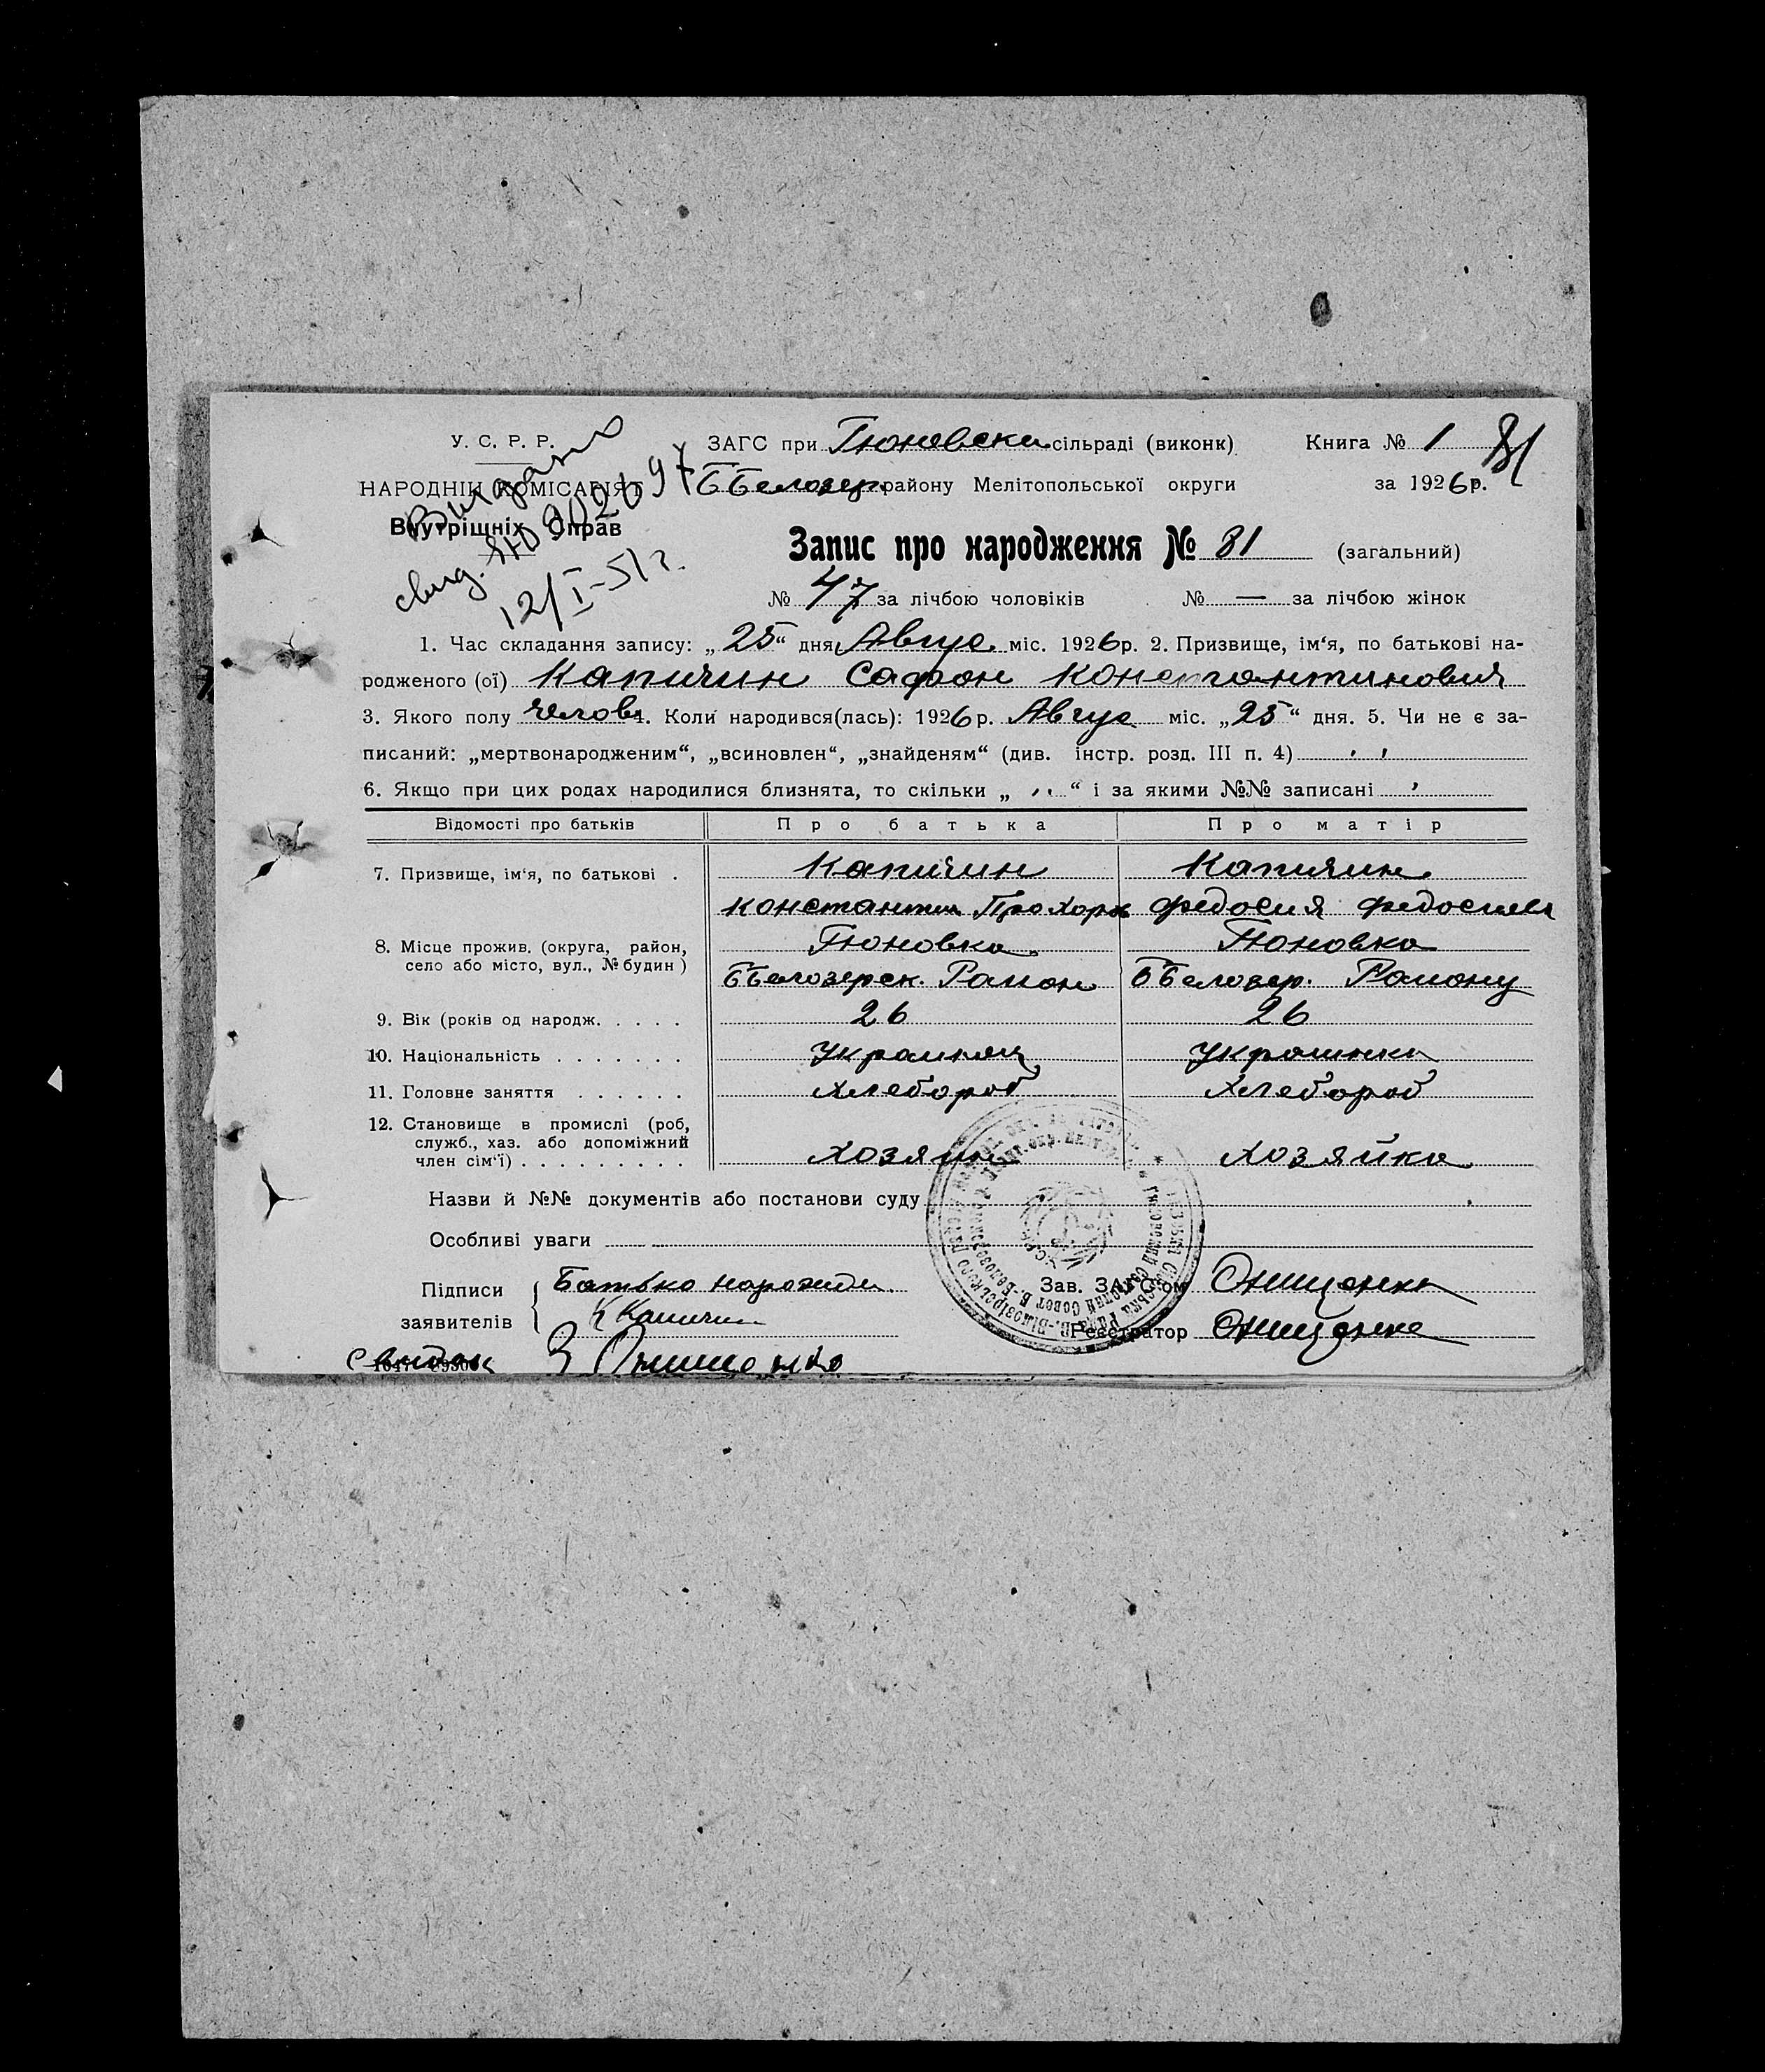 У. С. Р. Р.
НАРОДНІЙ КОМІСАРІЯТ
Внутрішніх Справ
свид. ЯЮ 902697
12/I-51 г.
ЗАГС при Гюновски сільраді (виконк) Книга № 1 81
ББелозер району Мелітопольської округи за 1926 р.
Запис про народження № 81 (загальний)
№ 47 за лічбою чоловіків № — за лічбою жінок
1. Час складання запису: „25“ дня Авгус. міс. 1926 р. 2. Призвище, ім‘я, по батькові на-
родженого (ої) Капичин Сафон Константинович
3. Якого полу челов. 4. Коли народився(лась): 1926 р. Авгус міс. „25“ дня. 5. Чи не є за-
писаний: „мертвонародженим“, „всиновлен“, „знайденям“ (див. інстр. розд. III п. 4)
6. Якщо при цих родах народилися близнята, то скільки „ “ і за якими №№ записані
Відомості про батьків Про батька Про матір
7. Призвище, ім‘я, по батькові . Капичин Капичин
Константин Прохоров Федосия Федосиева
8. Місце прожив. (округа, район, Гюновка Гюновка
село або місто, вул., № будин) ББелозерск. Район ББелозер. Району
9. Вік (років од народж. . . . . 26 26
10. Національність . . . . . . . Украинец Украинка
11. Головне заняття . . . . . . Хлебороб Хлебороб
12. Становище в промислі (роб,
служб., хаз. або допоміжний
член сім‘ї) . . . . . . . . . Хозяин Хозяйка
Назви й №№ документів або постанови суду
Особливі уваги
Підписи Батько нарожден. Зав. ЗАГС‘ом Онищенко
заявителів К Капичин Реєстратор Онищенко
Онищенко